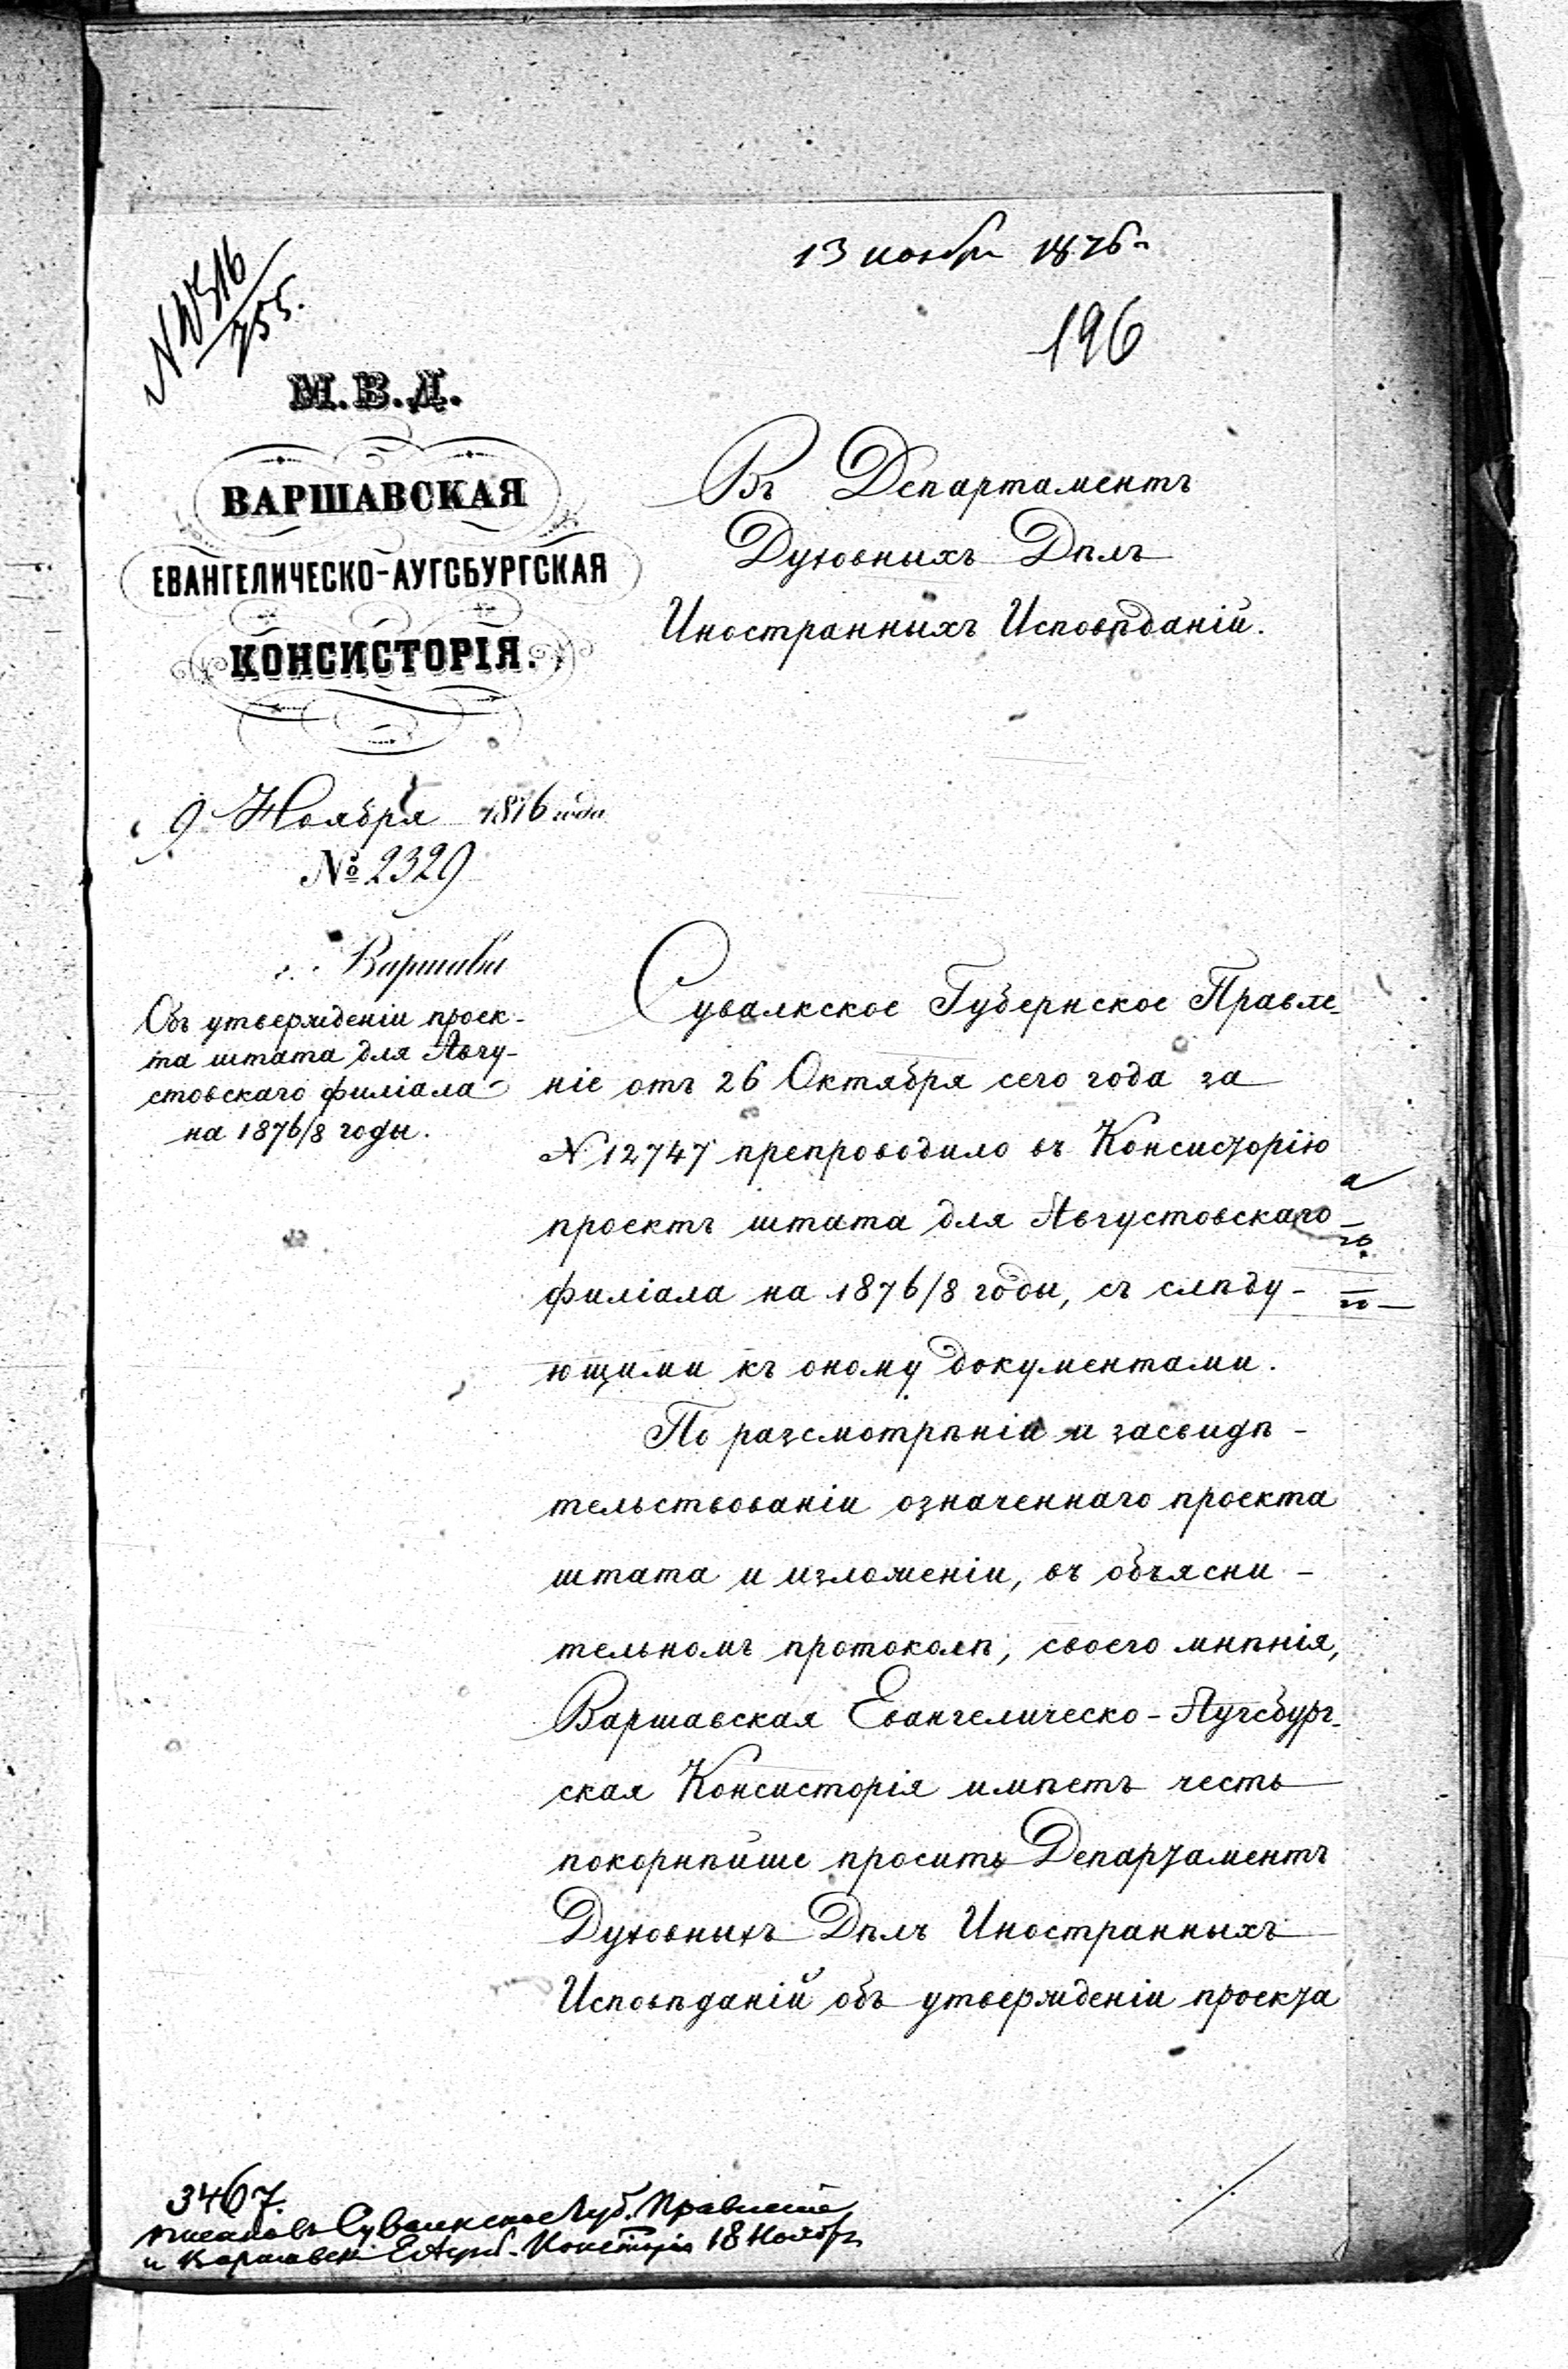 13 ноября 1876 г.
196
755.
М.В.Д.
ВАРШАВСКАЯ
ЕВАНГЕЛИЧЕСКО-АУГСБУРГСКАЯ
КОНСИСТОРІЯ.
9 Ноября 1876 года
№ 2329
г. Варшава
Объ утвержденіи проек-
та штата для Авгу-
стовскаго филіала
на 1876/8 годы.
Въ Департаментъ
Духовныхъ Дѣлъ
Иностранныхъ Исповѣданій.
Сувалкское Губернское Правле-
ніе отъ 26 Октября сего года за
№ 12747 препроводило въ Консисторію
проектъ штата для Августовскаго
филіала на 1876/8 годы, съ слѣду-
ющими къ оному документами.
По разсмотрѣніи и засвидѣ-
тельствованіи означеннаго проекта
штата и изложеніи, въ объясни-
тельномъ протоколѣ, своего мнѣнія,
Варшавская Евангелическо-Аугсбург-
ская Консисторія имѣетъ честь
покорнѣйше просить Департаментъ
Духовныхъ Дѣлъ Иностранныхъ
Исповѣданій объ утвержденіи проекта
3467.
Сувалкское Губ. Правленіе
и Варшавск. Консисторія 18 Ноября